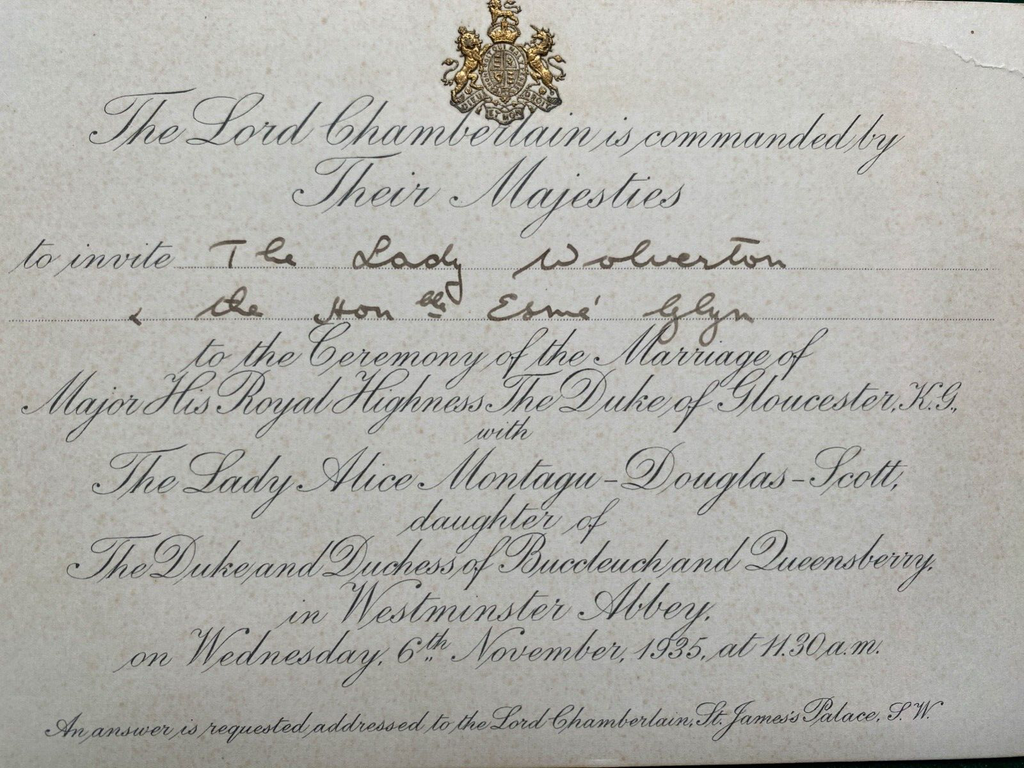 The Lord Chamberlain is commanded by
Their Majesties
to invite The Lady Wolverton
& the Honble Esmé Glyn
to the Ceremony of the Marriage of
Major His Royal Highness The Duke of Gloucester, K.G.,
with
The Lady Alice Montagu-Douglas-Scott,
daughter of
The Duke and Duchess of Buccleuch and Queensberry,
in Westminster Abbey,
on Wednesday, 6th November, 1935, at 11.30 a.m.
An answer is requested addressed to the Lord Chamberlain, St. James's Palace, S.W.